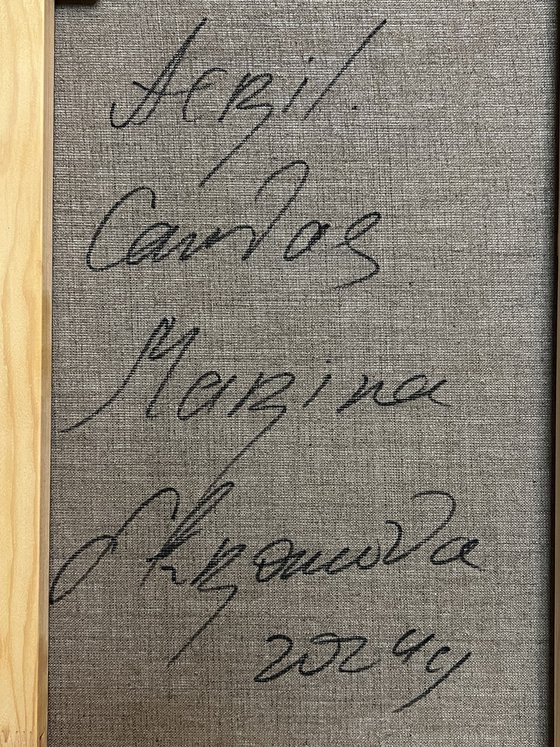 Acril.
Canvas
Marina
Skromova
2024y